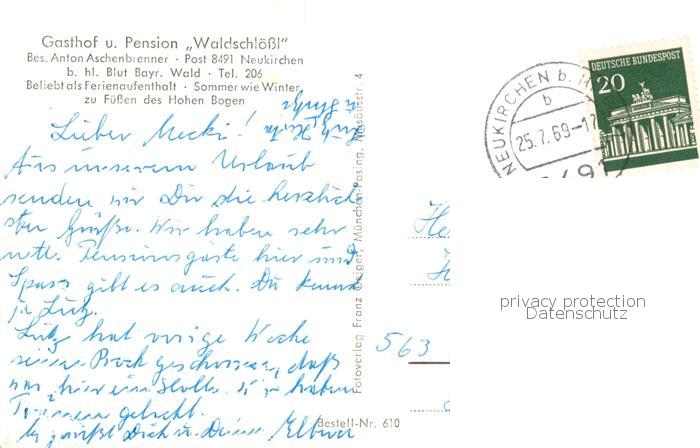 Gasthof u. Pension „Waldschlößl"
Bes. Anton Aschenbrenner · Post 8491 Neukirchen
b. hl. Blut Bayr. Wald · Tel. 206
Beliebt als Ferienaufenthalt · Sommer wie Winter
zu Füßen des Hohen Bogen
Lieber Mecki!
Aus unserem Urlaub
senden wir Dir die herzlich
sten Grüße. Wir haben sehr
nette Pensionsgäste hier und
Spass gibt es auch. Du kennst
ja Lutz.
Lutz hat vorige Woche
seinen Bock geschossen, daß
war hier eine haben
Tränen gelacht.
Es grüßt Dich
Fotoverlag Franz Geiger, München-Pasing, Mosöusstr. 4
Bestell-Nr. 610
NEUKIRCHEN b. H
b
25.7.69-17
8491
DEUTSCHE BUNDESPOST
20
563
privacy protection
Datenschutz